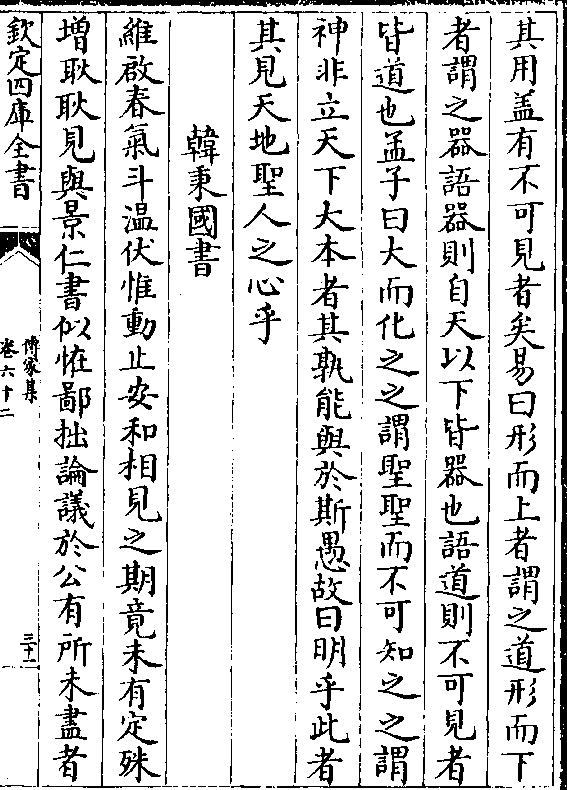 其用盖有不可見者矣易曰形而上者謂之道形而下
者謂之器語器則自天以下皆器也語道則不可見者
皆道也孟子曰大而化之之謂聖聖而不可知之之謂
神非立天下大本者其孰能與於斯愚故曰明乎此者
其見天地聖人之心乎
韓秉國書
維啟春氣斗温伏惟動止安和相見之期竟未有定殊
增耿耿見與景仁書似恠鄙拙論議於公有所未盡者
欽定四庫全書
傳家集
卷六十二
三十一